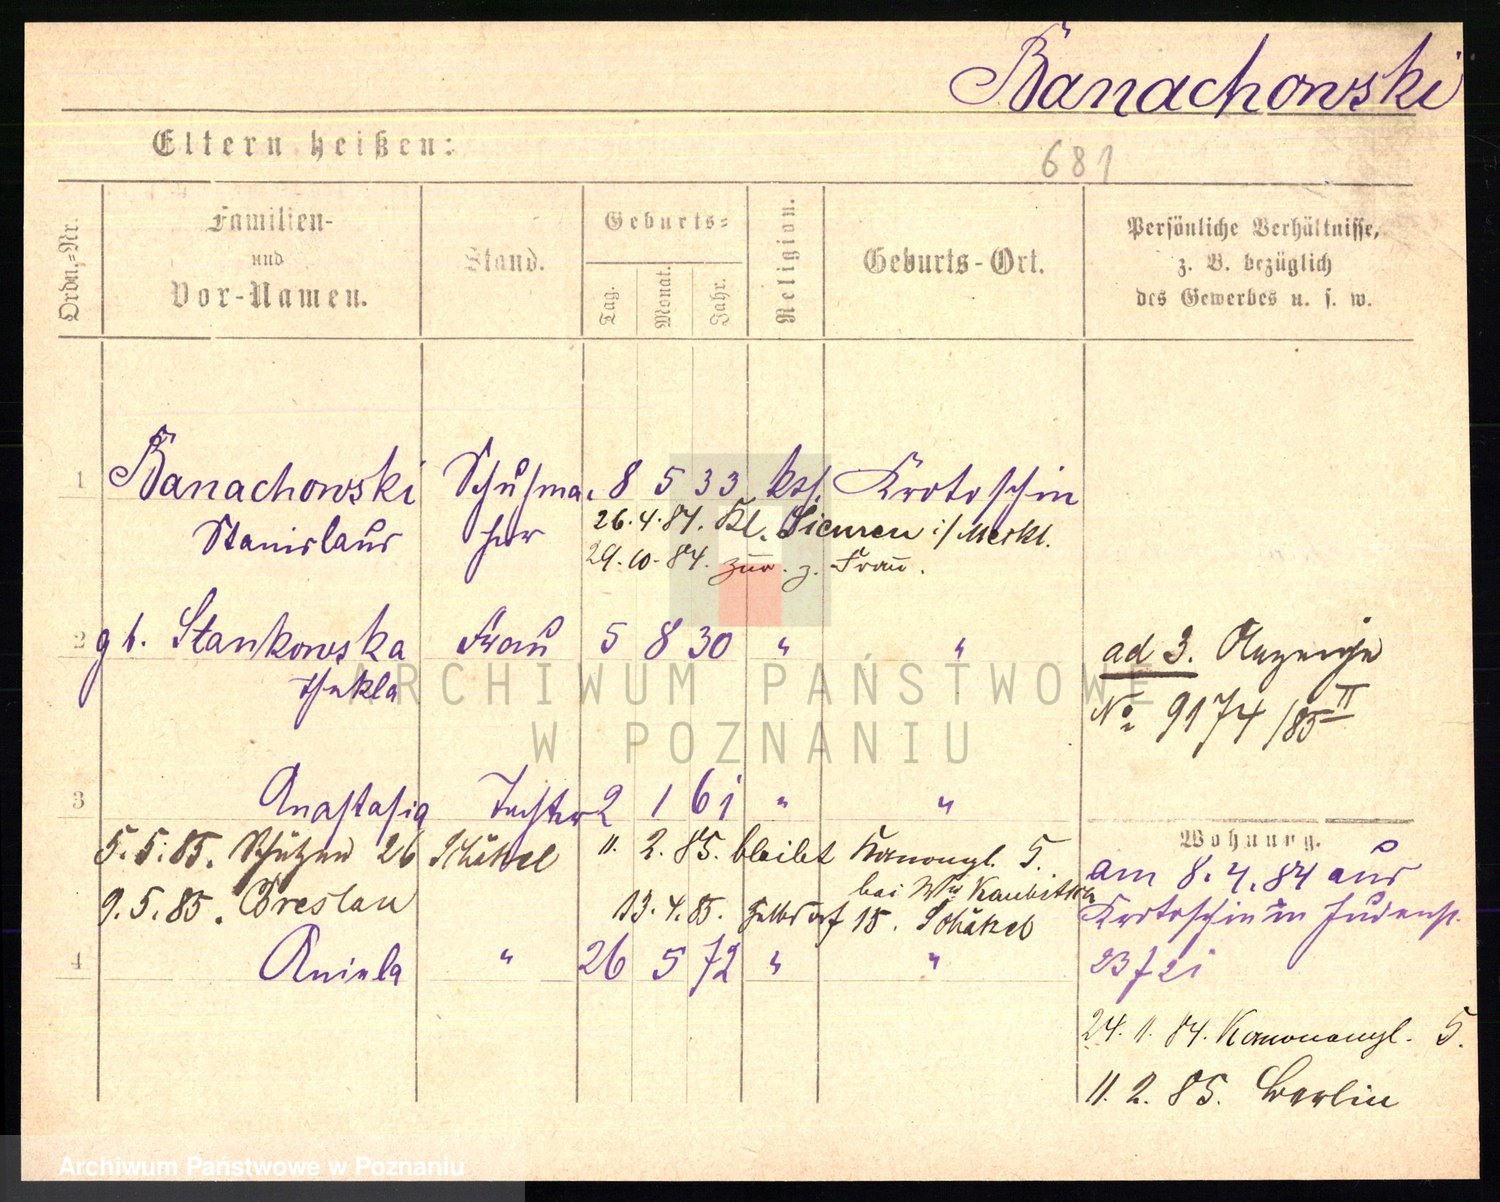 Banachowski
Eltern heißen:
681
Ordn.-Nr.
Familien-
und
Vor-Namen.
Stand.
Geburts-
Tag.
Monat.
Jahr.
Religion.
Geburts-Ort.
Persönliche Verhältnisse,
z. B. bezüglich
des Gewerbes u. s. w.
1 Banachowski Schuhma- 8 5 33 kth. Krotoschin
Stanislaus cher
26.4.84. Kl. i/
29.10.84. zur. z. Frau.
2 gb. Stankowska Frau 5 8 30 " "
Thekla
ad 3. Anzeige
No 9174/85 II
ARCHIWUM PAŃSTWOWE
W POZNANIU
3 Anastasia Tochter 2 1 61 " "
5.5.85. Schützen 26 11. 2. 85. bleibt Kanonpl. 5.
bei
9.5.85. Breslau 13.4.85. 15.
4 Aniela " 26 5 72 " "
Wohnung.
am 8.4.84 aus
Krotoschin in Judenst.
23 f 2i
24.11.84. Kanonenpl. 5.
11.2.85. Berlin
Archiwum Państwowe w Poznaniu